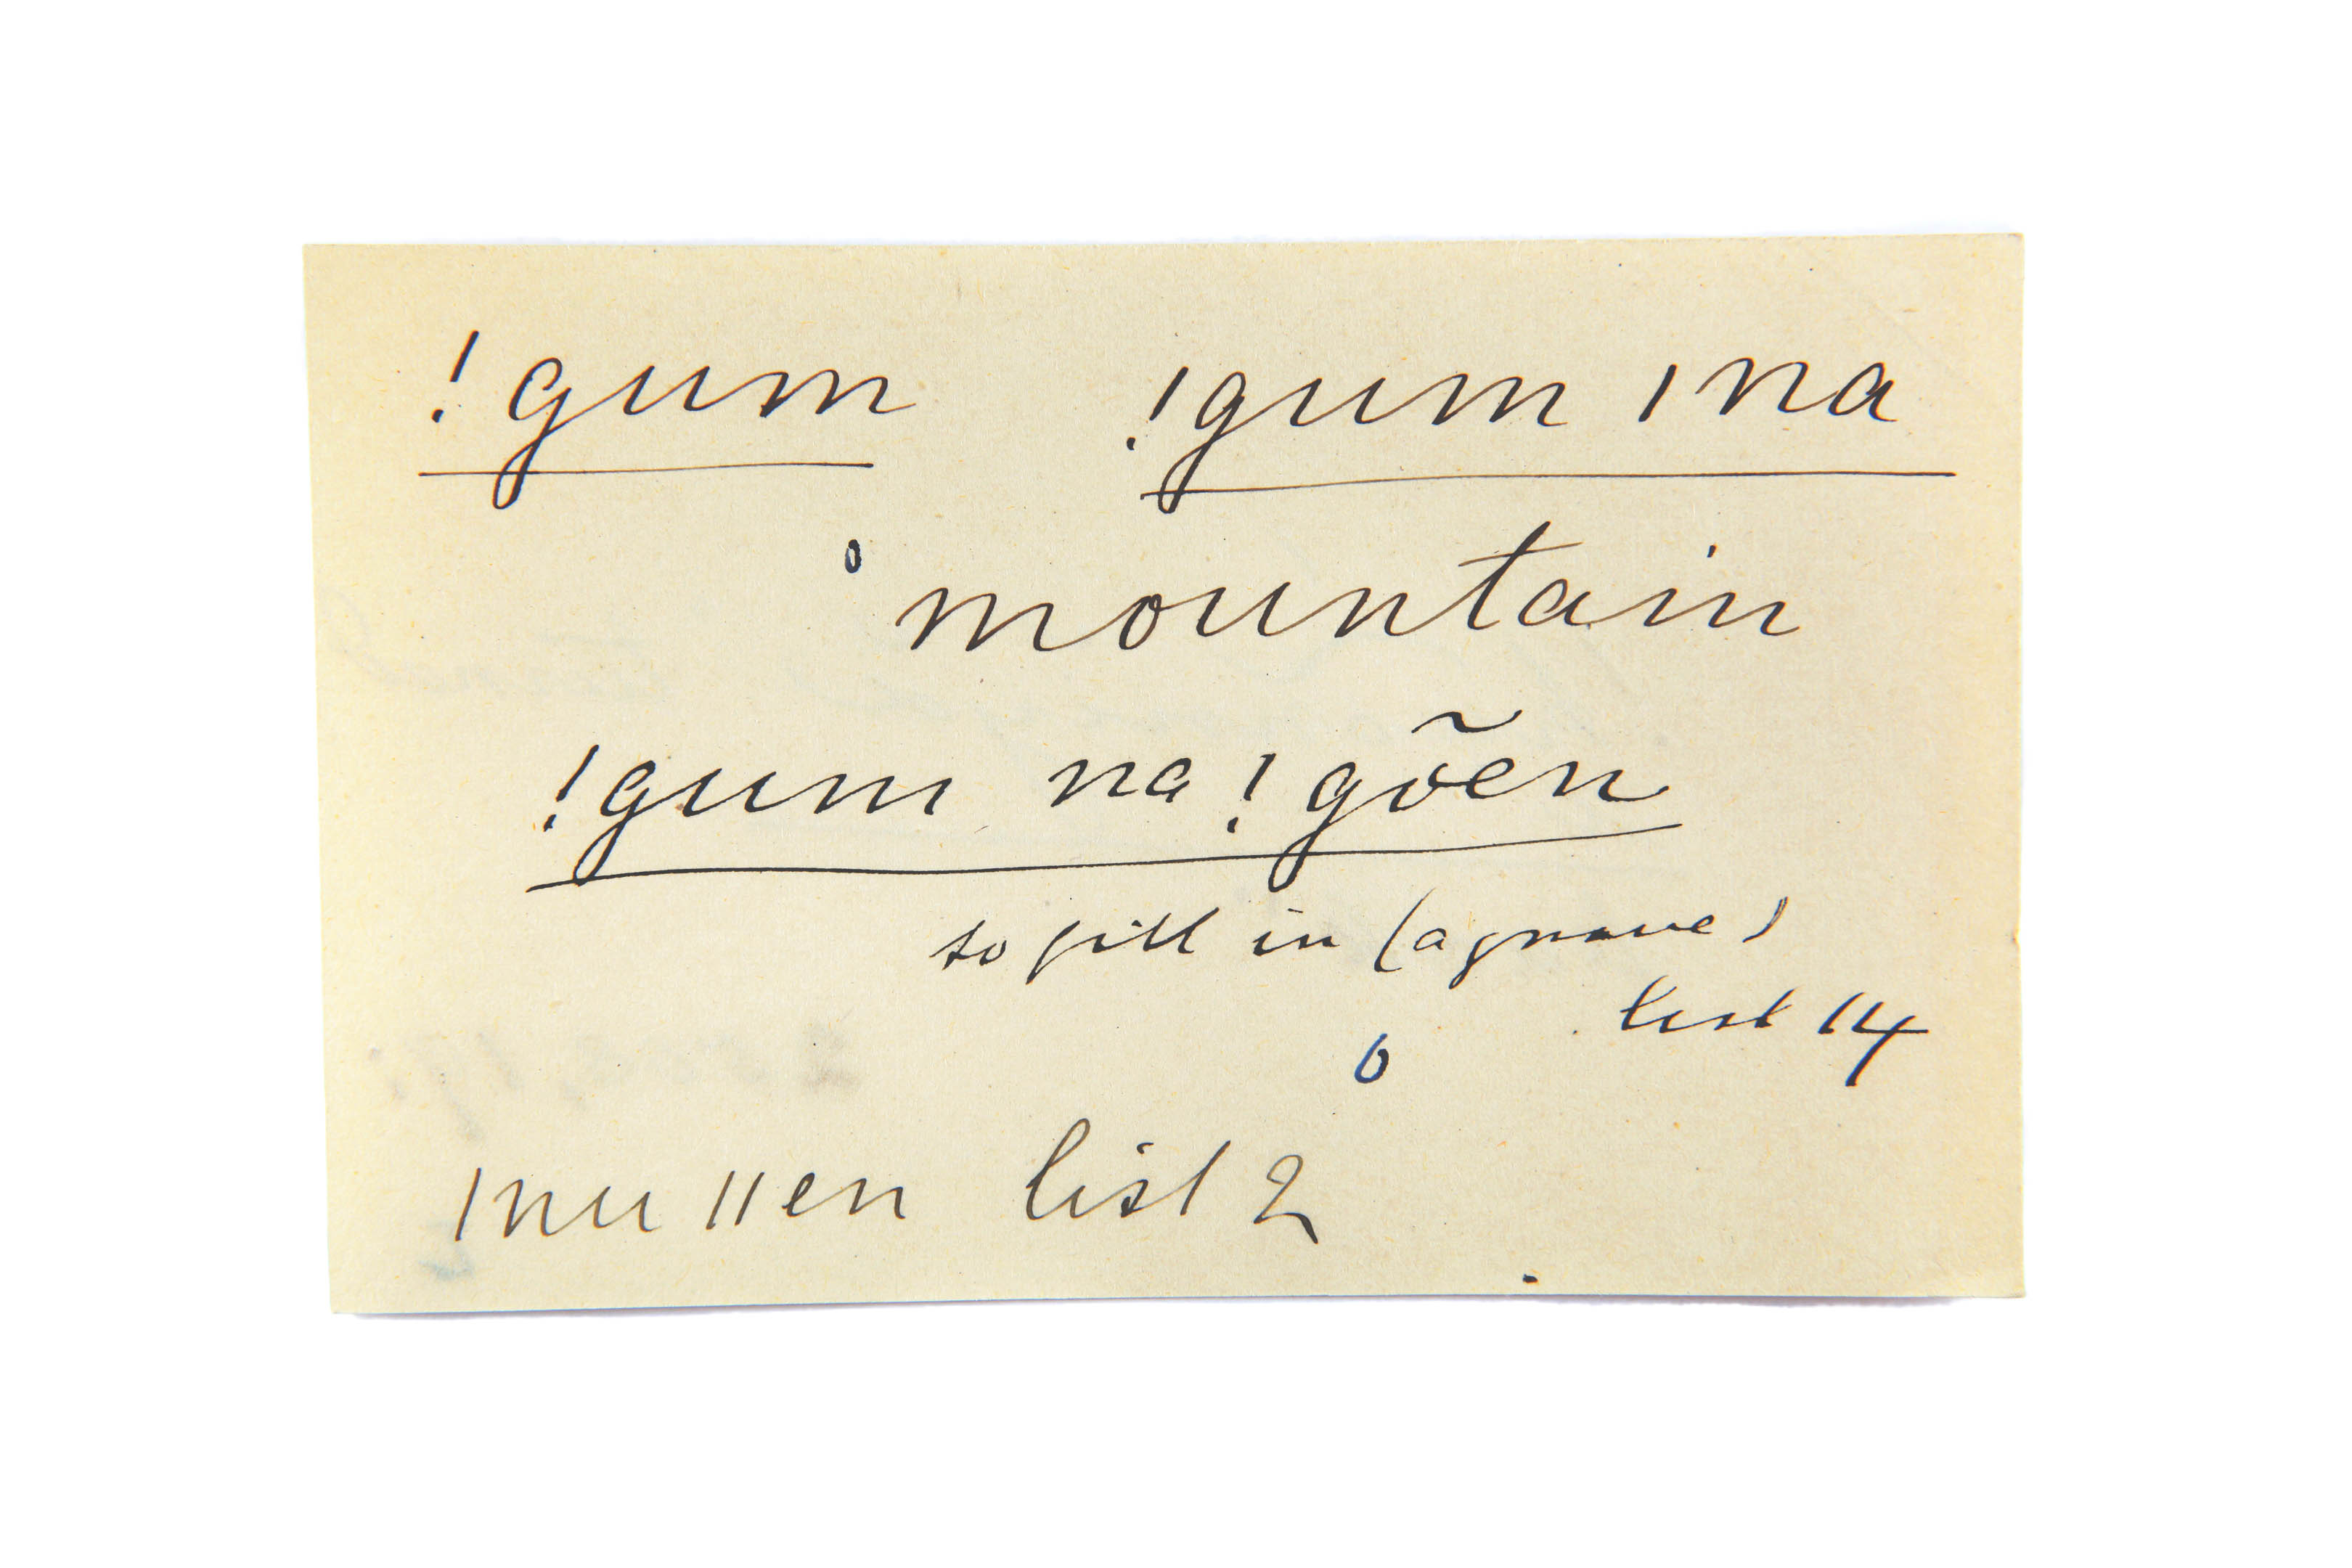 !gum !gum ǀna
o mountain
!gum na !gõen
to fill in (a grave)
list 14
o
ǀnu ǁen list 2